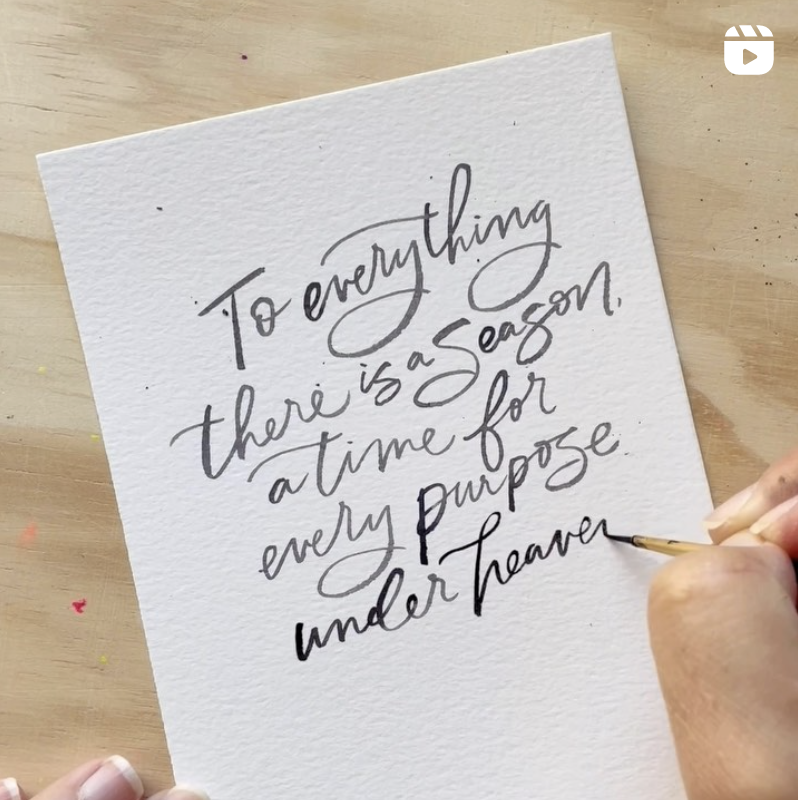 To everything
there is a Season,
a time for
every purpose
under heaven